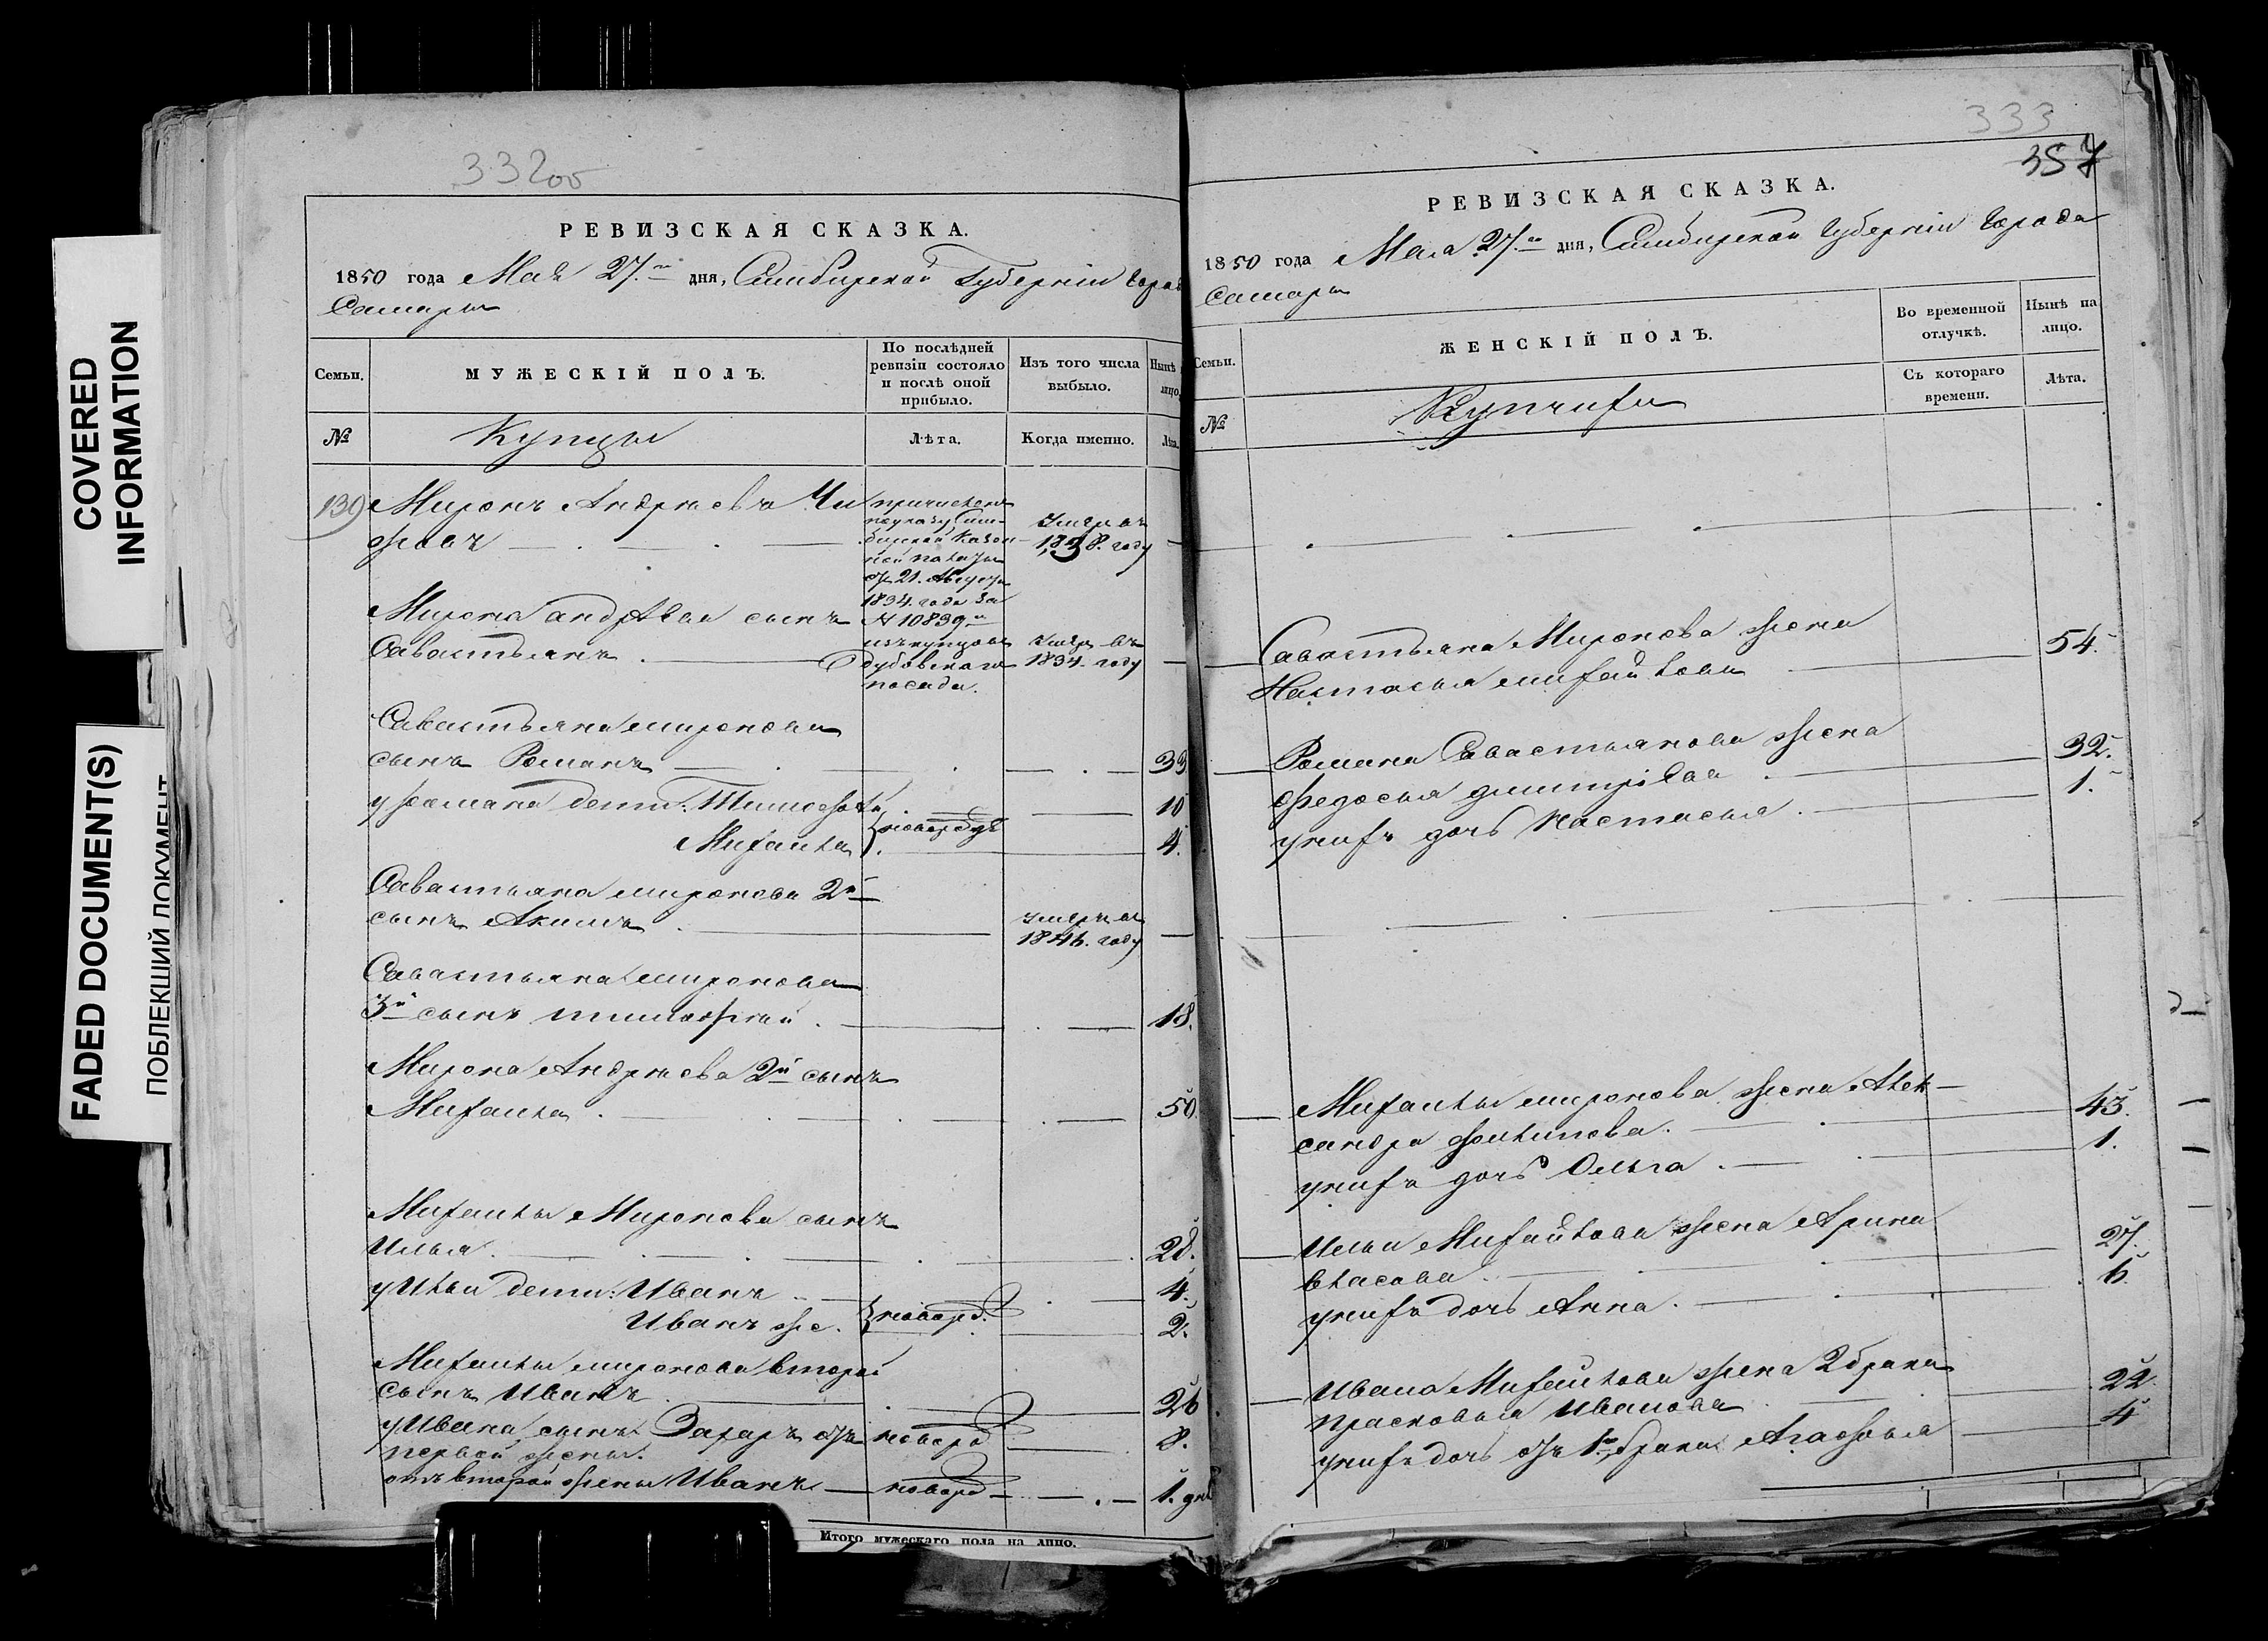 COVERED
INFORMATION
FADED DOCUMENT(S)
ПОБЛЕКШИЙ ДОКУМЕНТ
332об
РЕВИЗСКАЯ СКАЗКА.
1850 года Мая 27.го дня, Симбирской Губернiи Горо
Самары
Семьи.
МУЖЕСКІЙ ПОЛЪ.
По послѣдней
ревизіи состояло
и послѣ оной
прибыло.
Изъ того числа
выбыло.
Нынѣ
лицо.
№
Купцы
Лѣта.
Когда именно.
Лѣта.
139
Миронъ Андреевъ Чи
жовъ
причислены
по указу Сим-
бирской Казен
ной палаты
отъ 21. Августа
1834. года за
№ 10839.м
изъ купцовъ
Дубовскаго
посада.
умеръ въ
1838. году
Мирона андреева сынъ
Савастьянъ
умеръ въ
1834. году
Савастьяна миронова
сынъ Романъ
33
у Романа дети: Тимофей
10
новорожд
Михаила
4.
Савастьяна миронова 2й
сынъ Акимъ
умеръ въ
1846. году
Савастьяна миронова
3й сынъ тимофей
18.
Мирона Андреева 2й сынъ
Михаила
50.
Михаилы Миронова сынъ
Илья
28.
у Ильи дети: Иванъ
4.
Иванъ же.
новорожд.
2.
Михаилы миронова второй
сынъ Иванъ
26
у Ивана сынъ Захаръ отъ
первой жены.
новорожд
8.
отъ второй жены Иванъ
новорожд
1. дня
Итого мужескаго пола на лицо.
333
357
РЕВИЗСКАЯ СКАЗКА.
1850 года Мая 27.го дня, Симбирской Губернiи Города
Самары
Семьи.
ЖЕНСКІЙ ПОЛЪ.
Во временной
отлучкѣ.
Нынѣ на
лицо.
Съ котораго
времени.
Лѣта.
№
Купчихи
Савастьяна Миронова жена
Настасья михайлова
54.
Романа Савастьянова жена
Федосья дмитрiева
32.
у нихъ дочь Настасья
1.
Михаилы миронова жена Алек-
сандра филипова.
43.
у нихъ дочь Ольга
1.
Ильи Михайлова жена Арина
власова
27.
у нихъ дочь Анна
6.
Ивана Михайлова жена 2 брака
прасковья Иванова
22.
у нихъ дочь отъ 1го брака Агафья
4